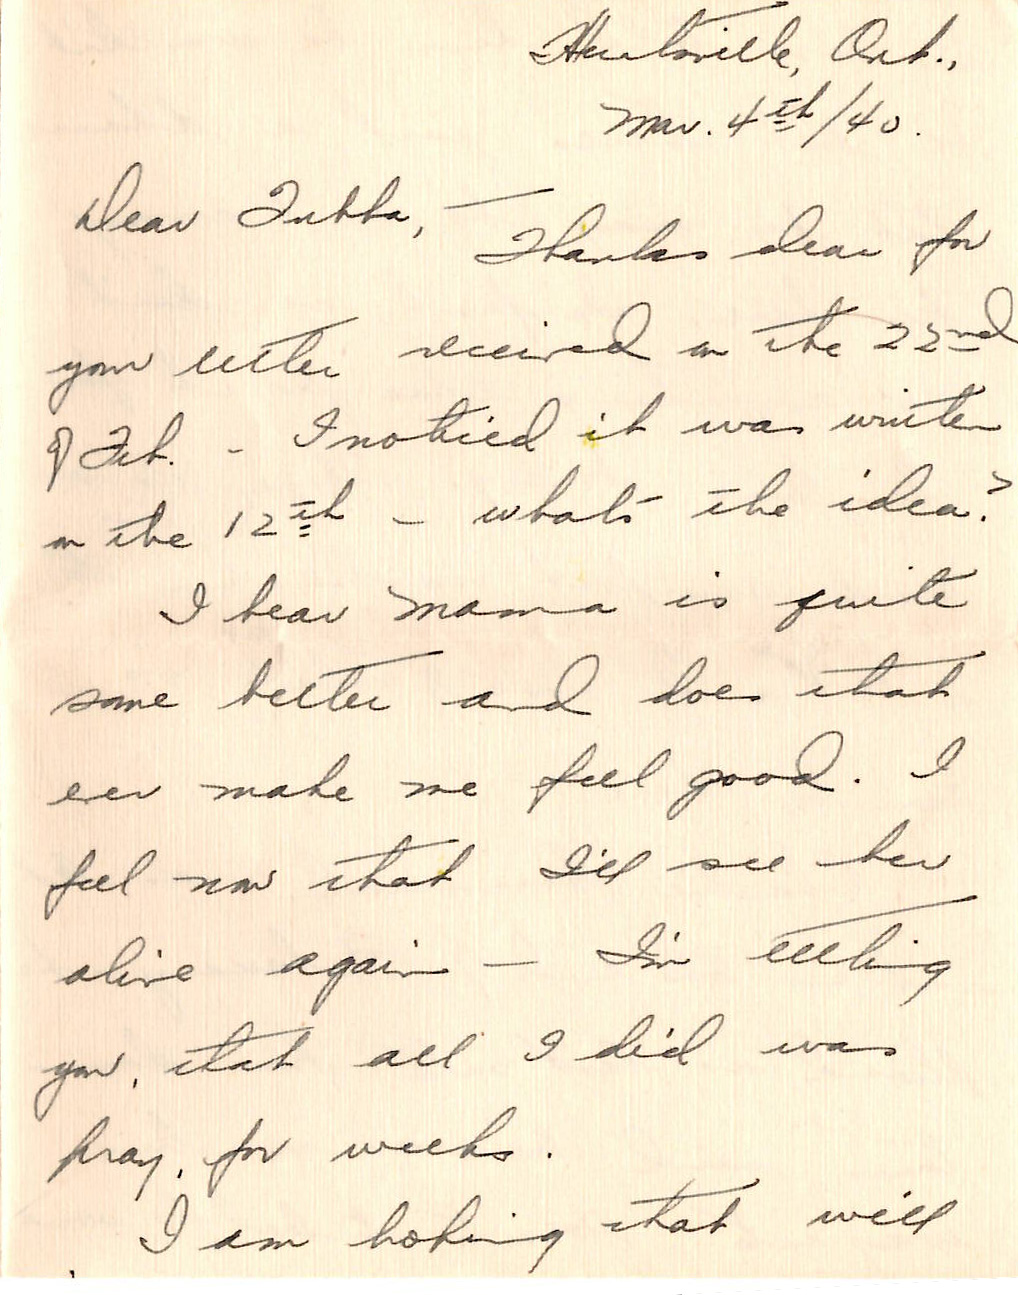 Huntsville, Ont.,
Mar. 4th/40.
Dear Tubba, —
Thanks dear for
your letter received on the 22nd
of Feb. - I noticed it was written
on the 12th - what's the idea?
I hear Mama is quite
some better and does that
ever make me feel good. I
feel now that I'll see her
alive again — I'm telling
you, that all I did was
pray, for weeks.
I am hoping that will